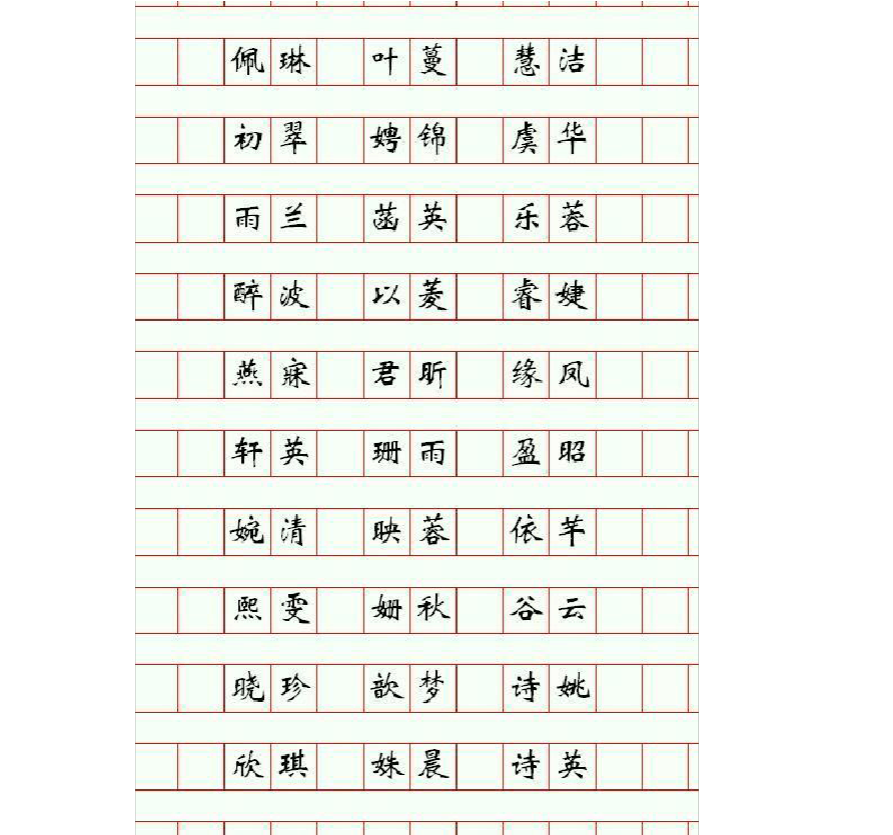 佩琳 叶蔓 慧洁
初翠 娉锦 虞华
雨兰 菡英 乐蓉
醉波 以菱 睿婕
燕寐 君昕 缘凤
轩英 珊雨 盈昭
婉清 映蓉 依芊
熙雯 姗秋 谷云
晓珍 歆梦 诗姚
欣琪 姝晨 诗英